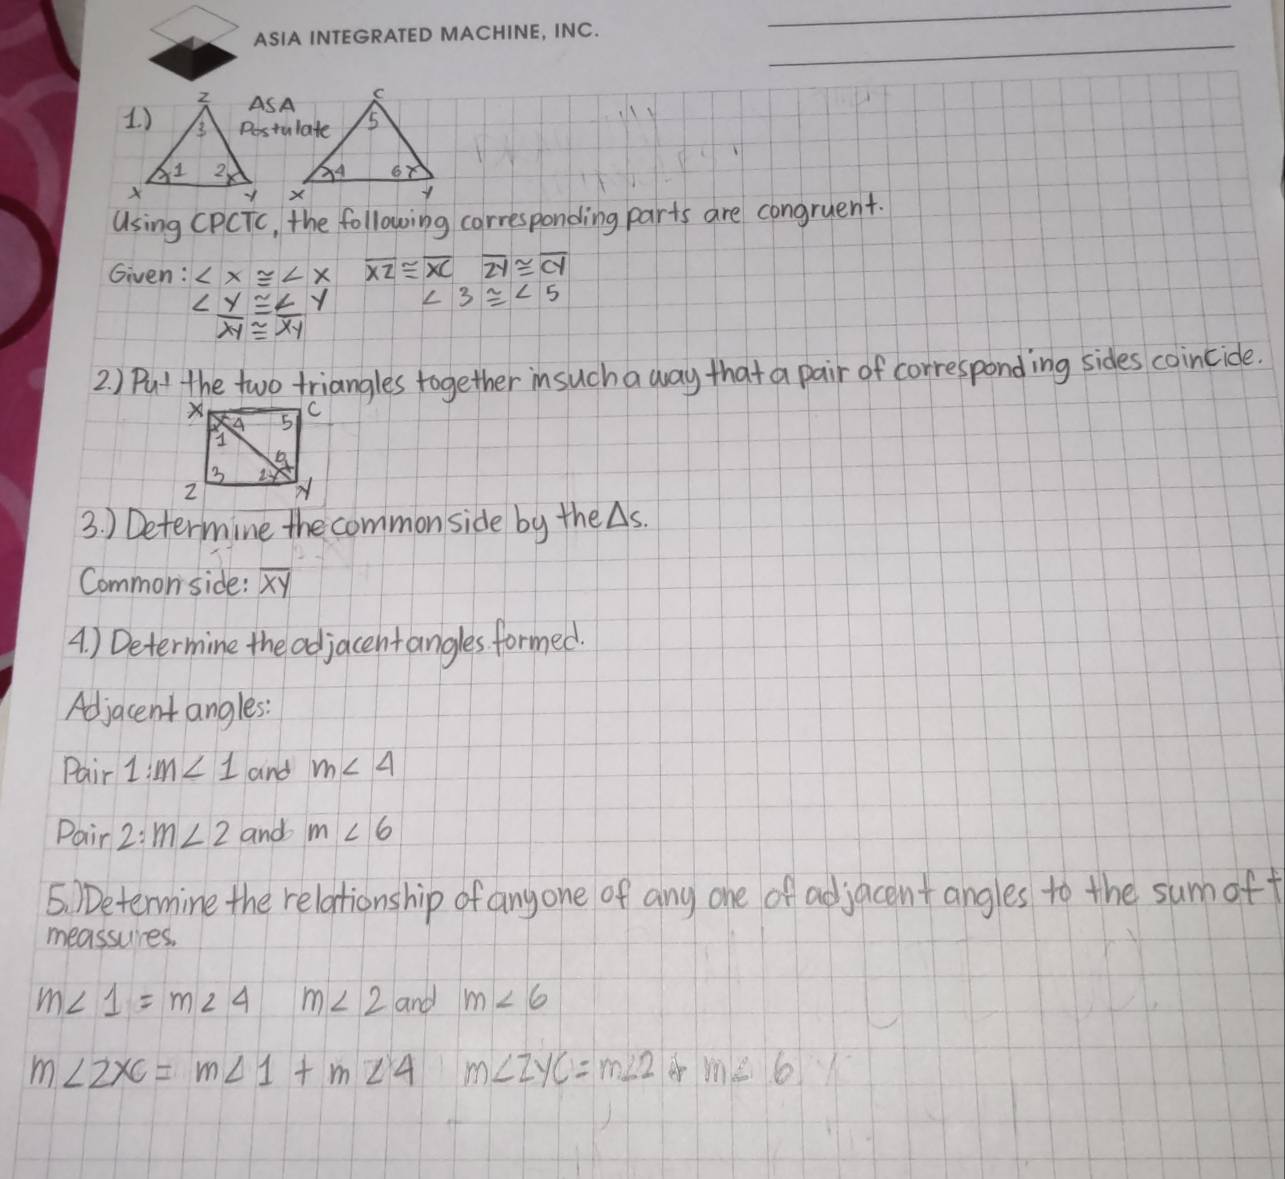 ASIA INTEGRATED MACHINE, INC.
1.) Z ASA C
3 Postulate 5
1 2 4 6
X Y X Y
Using CPCTC, the following corresponding parts are congruent.
Given: ∠ X ≅ ∠ X XZ ≅ XC ZY ≅ CY
∠ Y ≅ ∠ Y ∠ 3 ≅ ∠ 5
XY ≅ XY
2.) Put the two triangles together in such a way that a pair of corresponding sides coincide.
X C
4 5
1
6
3 2
Z Y
3.) Determine the common side by the Δs.
Common side: XY
4.) Determine the adjacent angles formed.
Adjacent angles:
Pair 1: m∠ 1 and m∠ 4
Pair 2: m∠ 2 and m ∠ 6
5.) Determine the relationship of anyone of any one of adjacent angles to the sum of t
meassures.
m∠ 1 = m∠ 4 m∠ 2 and m∠ 6
m∠ZXC = m∠1 + m∠4 m∠ZYC = m∠2 + m∠ 6